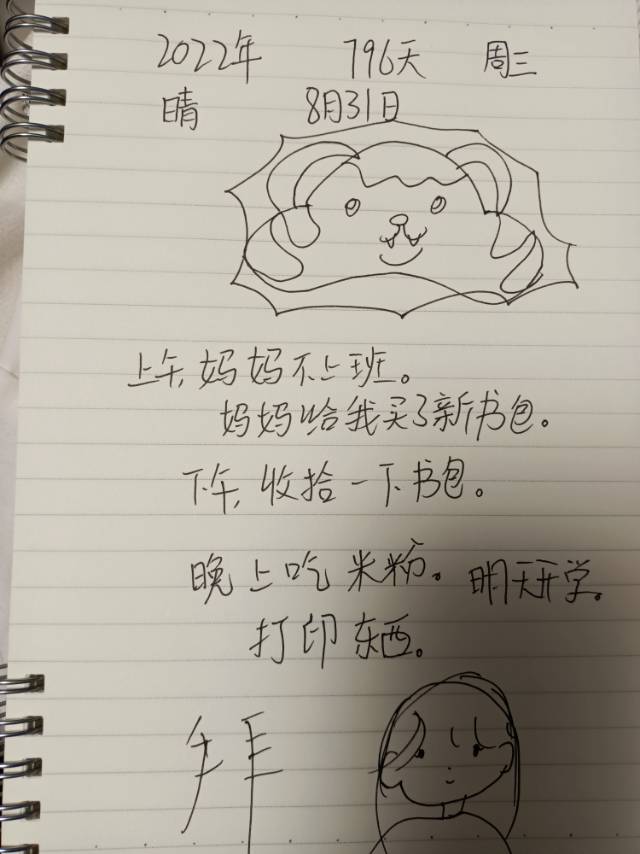 2022年 796天 周三
晴 8月31日
上午,妈妈不上班。
妈妈给我买了新书包。
下午,收拾一下书包。
晚上吃米粉。明天开学。
打印东西。
拜